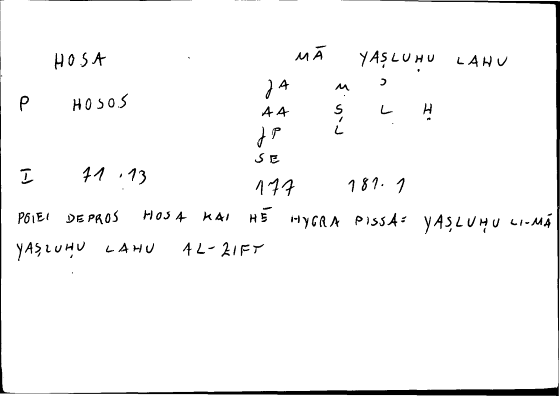 HOSA MĀ YAṢLUḤU LAHU
JA M ʾ
P HOSOS AA Ṣ L Ḥ
JP L
SE
I 71.13 177 181.1
POIEI DEPROS HOSA KAI HĒ HYGRA PISSA= YAṢLUḤU LI-MĀ
YAṢLUḤU LAHU AL-ZIFT